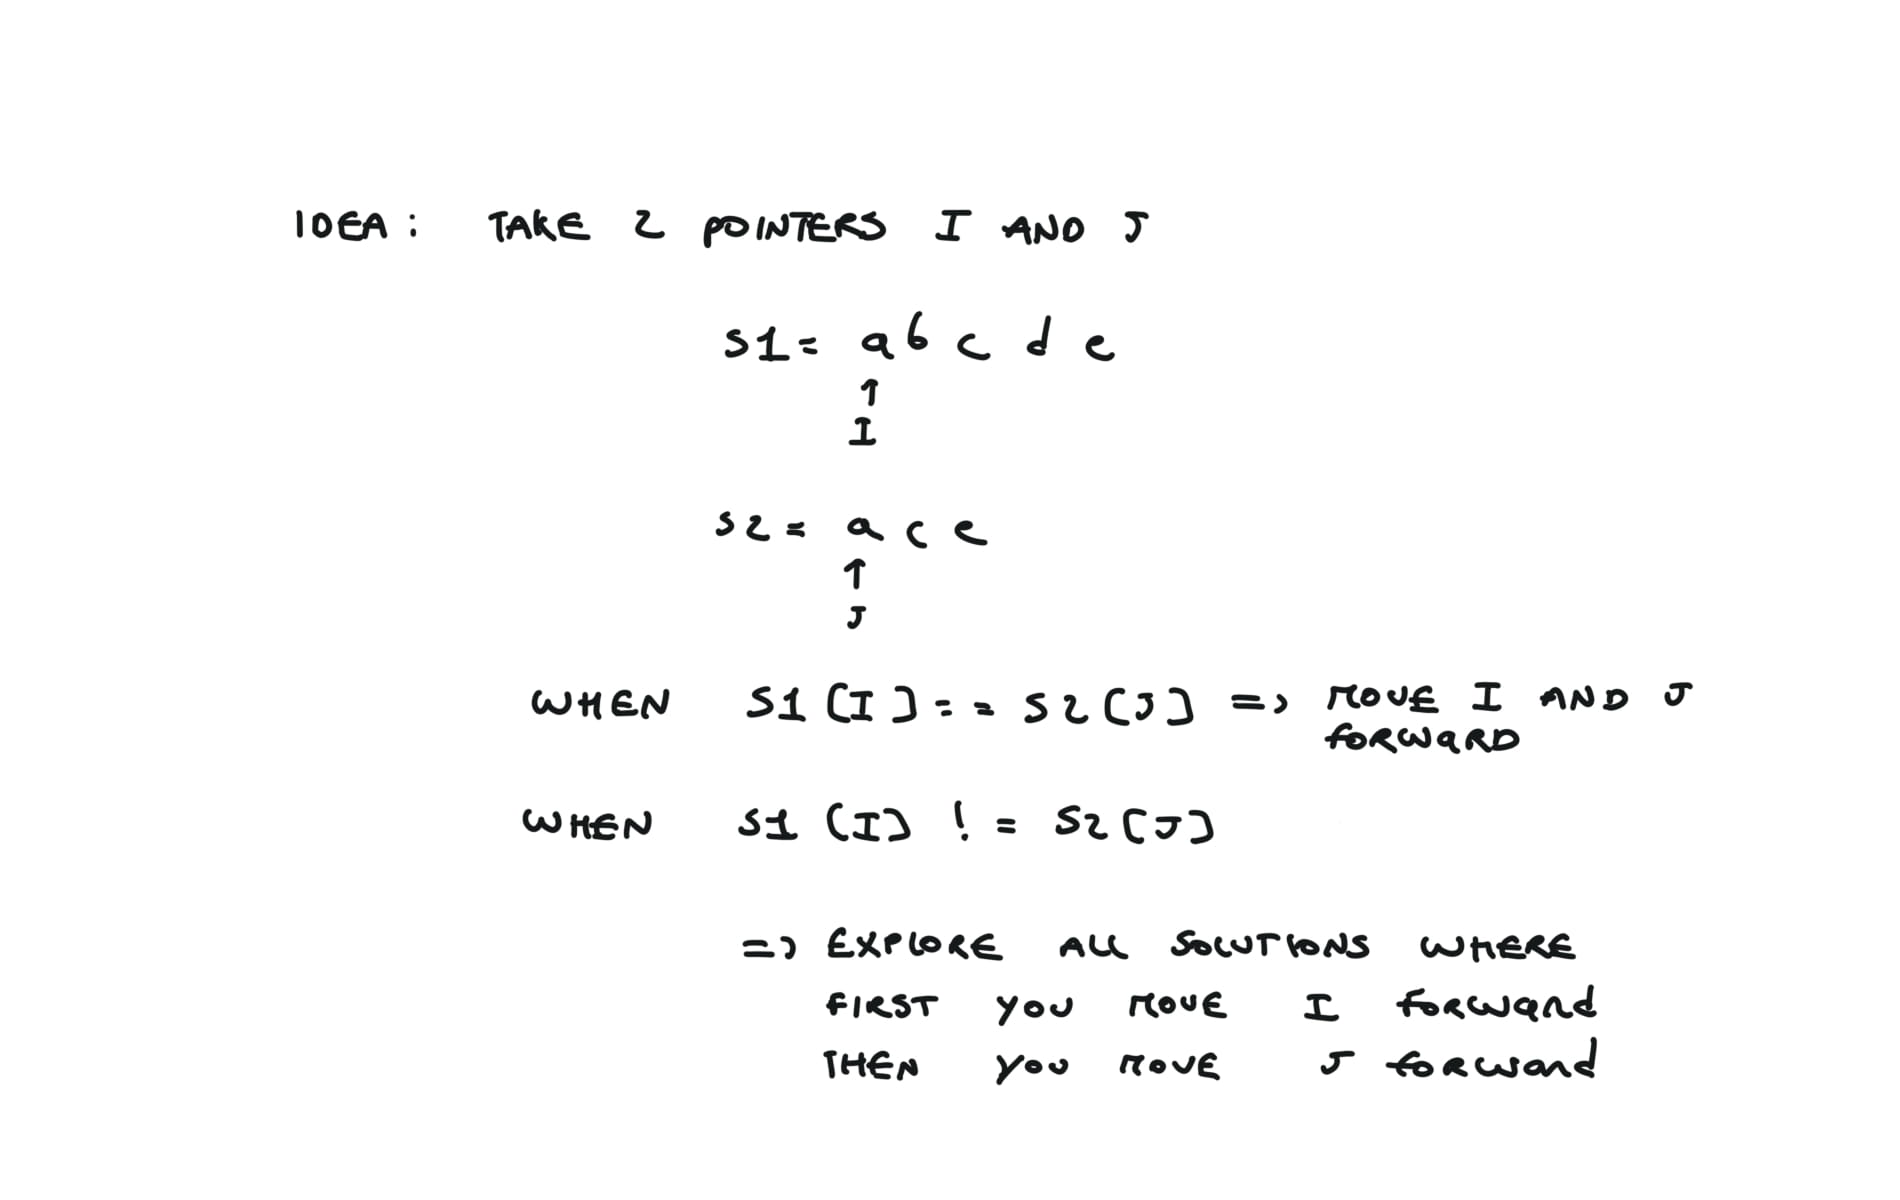 IDEA : TAKE 2 POINTERS I AND J
S1 = a b c d e
↑
I
S2 = a c e
↑
J
WHEN S1 [I] == S2 [J] => MOVE I AND J
FORWARD
WHEN S1 [I] != S2 [J]
=> EXPLORE ALL SOLUTIONS WHERE
FIRST YOU MOVE I forward
THEN YOU MOVE J forward